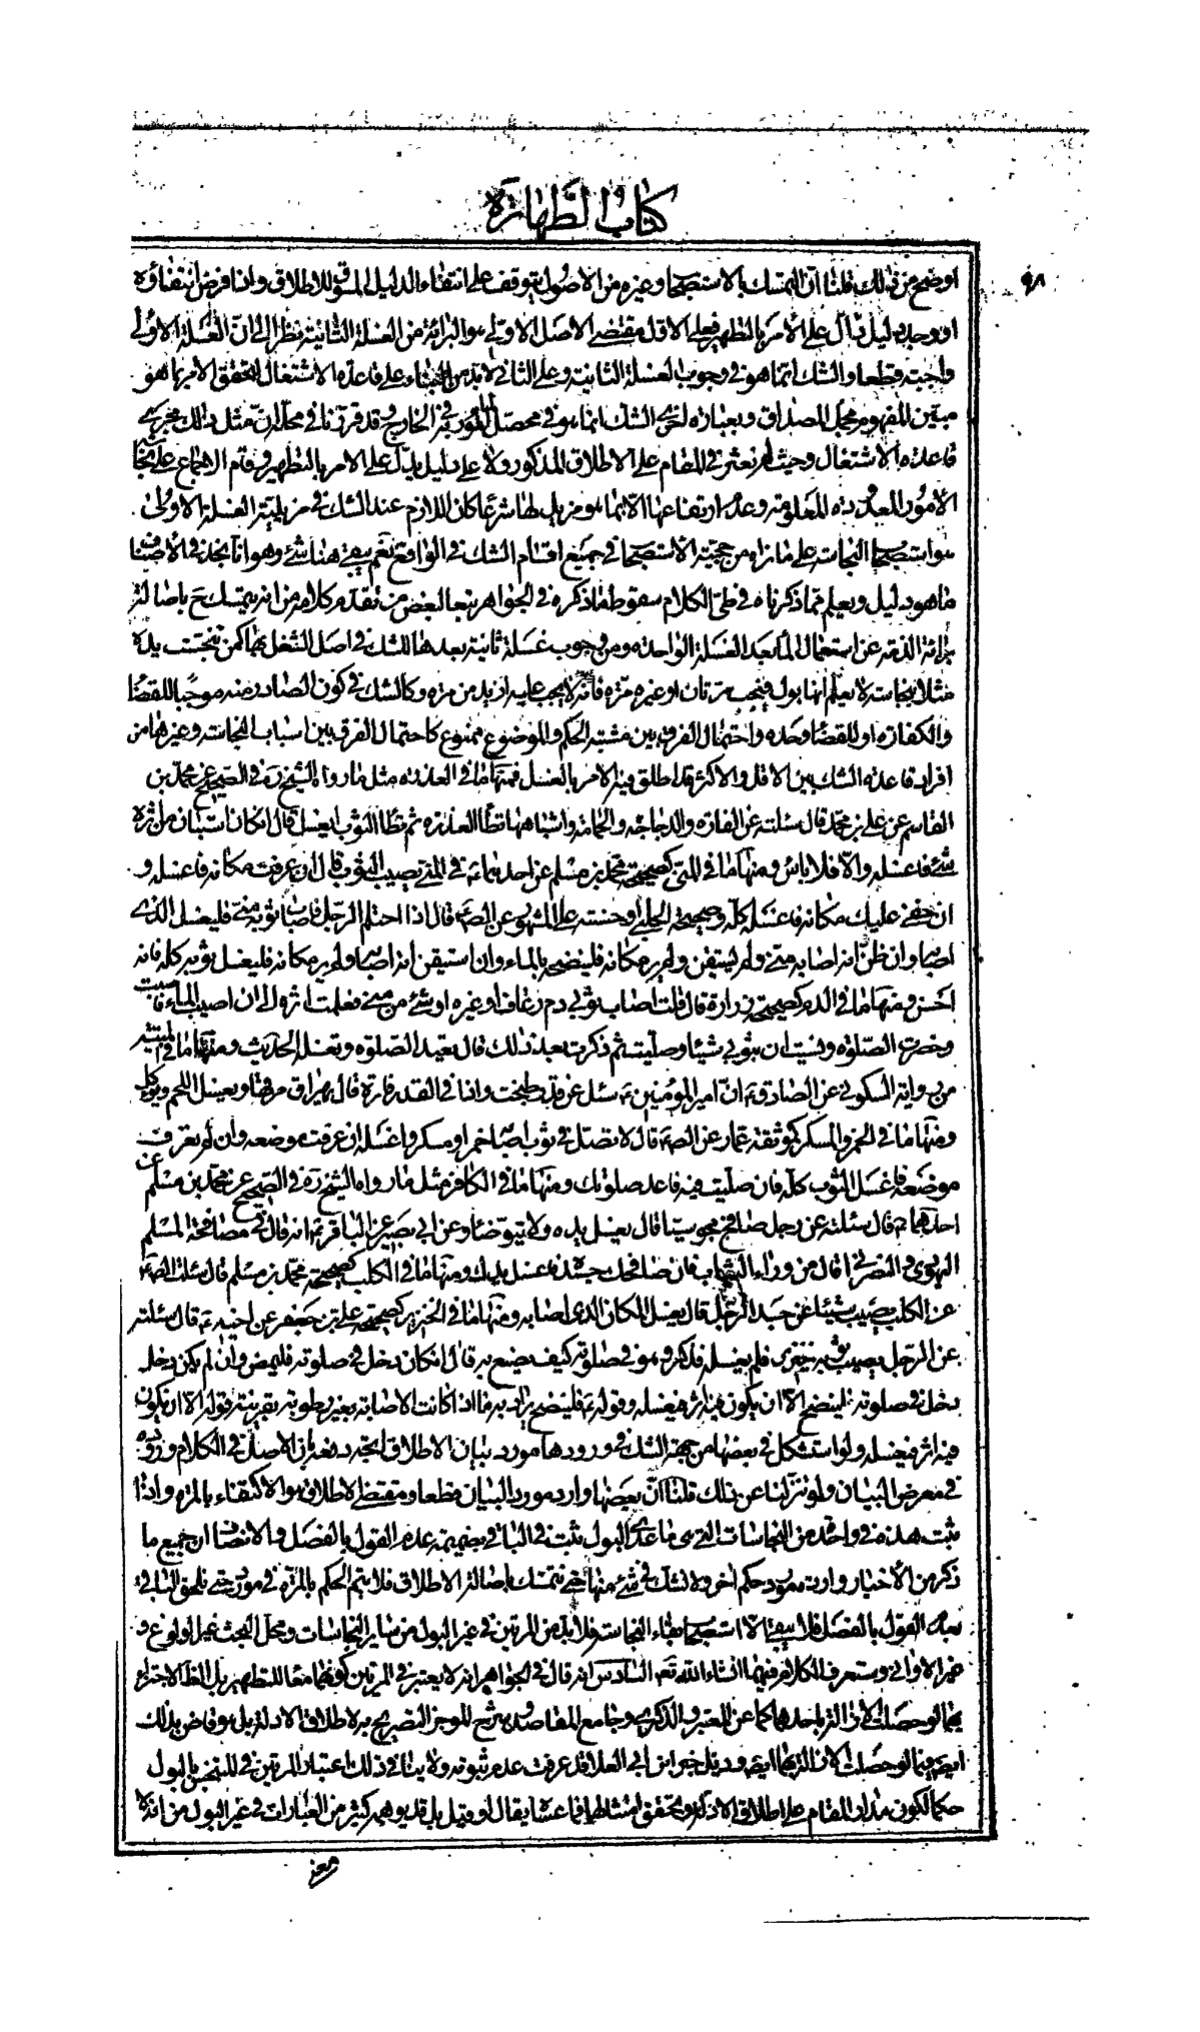 كتاب الطهارة
٩٨
اوضح من ذلك قلنا ان التمسك بالاستصحاب وغيره من الاصول يتوقف على انتفاء الدليل المسوق للاطلاق واذا فرض انتفاؤه
او وجد دليل دال على الأمر بالتطهير فعلى الاول مقتضى الاصل الاولى هو البرائة من الغسلة الثانية نظرا الى ان الغسلة الاولى
واجبة قطعا والشك انما هو في وجوب الغسلة الثانية وعلى الثاني لا بد من البناء على قاعدة الاشتغال لتحقق الامر بما هو
مبين المفهوم مجمل المصداق وبعبارة اخرى الشك انما هو في محصل المأمور به في الخارج وقد قررنا في محله ان مثل ذلك مجرى
قاعدة الاشتغال وحيث لم نعثر في المقام على الاطلاق المذكور ولا على دليل يدل على الامر بالتطهير وقام الاجماع على نجاسة
الأمور المعدودة المعلومة وعدم ارتفاعها الا بما هو مزيل لها شرعا كان اللازم عند الشك في مزيلية الغسلة الاولى
هو استصحاب النجاسة على ما نراه من حجية الاستصحاب في جميع اقسام الشك في الواقع نعم بقى هنا شئ وهو انا نجد في الأصناف
ما هو دليل ويعلم مما ذكرناه في طى الكلام سقوط ما ذكره في الجواهر تبعا لبعض من تقدم كلامه من انه يتمسك ح باصالة
برائة الذمة عن استعمال الماء بعد الغسلة الواحدة ومن وجوب غسلة ثانية بعدها للشك في اصل الشغل بها كمن تنجست يده
مثلا بنجاسة لا يعلم انها بول فيجب مرتان او غيره مرة فانه لا يجب عليه ازيد من مرة وكالشك في كون الصادر منه موجبا للقضاء
والكفارة او للقضاء وحده واحتمال الفرق بين مشتبه الحكم والموضوع ممنوع كاحتمال الفرق بين اسباب النجاسة وغيرها من
افراد قاعدة الشك بين الاقل والاكثر قد اطلق فيه الامر بالغسل فمنها ما في العذرة مثل ما رواه الشيخ ره في الصحيح عن محمد بن
القاسم عن على بن محمد قال سئلته عن الفارة والدجاجة والحمامة واشباهها تطأ العذرة ثم تطأ الثوب ايغسل قال ان كان استبان من اثره
شئ فاغسله والا فلا باس ومنها ما في المنى كصحيحة محمد بن مسلم عن احدهما ع في المنى يصيب الثوب قال ان عرفت مكانه فاغسله و
ان خفى عليك مكانه فاغسله كله وصحيحة الحلبى او حسنته على المشهور عن الص ع قال اذا احتلم الرجل فاصاب ثوبه منى فليغسل الذى
اصابه وان ظن انه اصابه منى ولم يستيقن ولم ير مكانه فلينضحه بالماء وان استيقن انه اصابه ولم ير مكانه فليغسل ثوبه كله فانه
احسن ومنها ما في الدم كصحيحة زرارة قال قلت اصاب ثوبى دم رعاف او غيره او شئ من منى فعلمت اثره الى ان اصيب الماء فاصبت
وحضرت الصلوة ونسيت ان بثوبى شيئا وصليت ثم ذكرت بعد ذلك قال تعيد الصلوة وتغسله الحديث ومنها ما في الميتة
من رواية السكونى عن الصادق ع ان امير المؤمنين ع سئل عن قدر طبخت واذا في القدر فارة قال يهراق مرقها ويغسل اللحم ويؤكل
ومنها ما في الخمر والمسكر كموثقة عمار عن الص ع قال لا تصل في ثوب اصابه خمر او مسكر واغسله ان عرفت موضعه وان لم تعرف
موضعه فاغسل الثوب كله فان صليت فيه فاعد صلوتك ومنها ما في الكافر مثل ما رواه الشيخ ره في الصحيح عن محمد بن مسلم عن
احدهما ع قال سئلته عن رجل صافح مجوسيا قال يغسل يده ولا يتوضأ وعن ابى بصير عن الباقر ع انه قال في مصافحة المسلم
اليهودى والنصرانى قال من وراء الثياب فان صافحك بيده فاغسل يدك ومنها ما في الكلب كصحيحة محمد بن مسلم قال سئلت الص ع
عن الكلب يصيب شيئا عن جسد الرجل قال يغسل المكان الذى اصابه ومنها ما في الخنزير كصحيحة على بن جعفر عن اخيه ع قال سئلته
عن الرجل يصيب ثوبه خنزير فلم يغسله فذكر وهو في صلوته كيف يصنع به قال ان كان دخل في صلوته فليمض وان لم يكن دخل
دخل في صلوته فلينضح الا ان يكون فيه اثر فيغسله وقوله ع فلينضح يراد به ما اذا كانت الاصابة بغير رطوبة بقرينة قوله الا ان يكون
فيه اثر فيغسله ولو استشكل في بعضها من جهة الشك في ورودها مورد بيان الاطلاق اتجه دفعه بان الاصل في الكلام وروده
في معرض البيان ولو تنزلنا عن ذلك قلنا ان بعضها وارد مورد البيان قطعا ومقتضى الاطلاق هو الاكتفاء بالمرة واذا
ثبت هذه في واحد من النجاسات التى هى ما عدى البول ثبت في الباقى بضميمة عدم القول بالفصل والانصاف ان جميع ما
ذكر من الأخبار وارد مورد حكم اخر ولا نشك في شئ منها حتى نتمسك باصالة الاطلاق فلا يتم الحكم بالمرة في مورد حتى نلحق الباقى
بعدم القول بالفصل فلا يبقى الا استصحاب بقاء النجاسة فلا بد من المرتين في غير البول من سائر النجاسات ومحل البحث غير الولوغ و
غير الاوانى وستعرف الكلام فيهما انشاء الله تعالى السادس انه قال في الجواهر انه لا يعتبر في المرتين كونهما معا للتطهير بل الظ الاجتزاء
بهما لو حصلت الازالة باحدهما كما عن المعتبر والذكرى وجامع المقاصد وشرح الموجز التصريح به لاطلاق الادلة بل هو قاض بذلك
ايض فيما لو حصلت الازالة بهما ايض وذيل خبر ابن ابى العلا قد عرفت عدم ثبوته ولا ينافى ذلك اعتبار المرتين في المتنجس بالبول
حكما لكون مدار المقام على اطلاق الادلة وتحقق امتثالها فما عساه يقال او قيل بل قد يوهمه كثير من العبارات في غير البول من انه لا
معنى